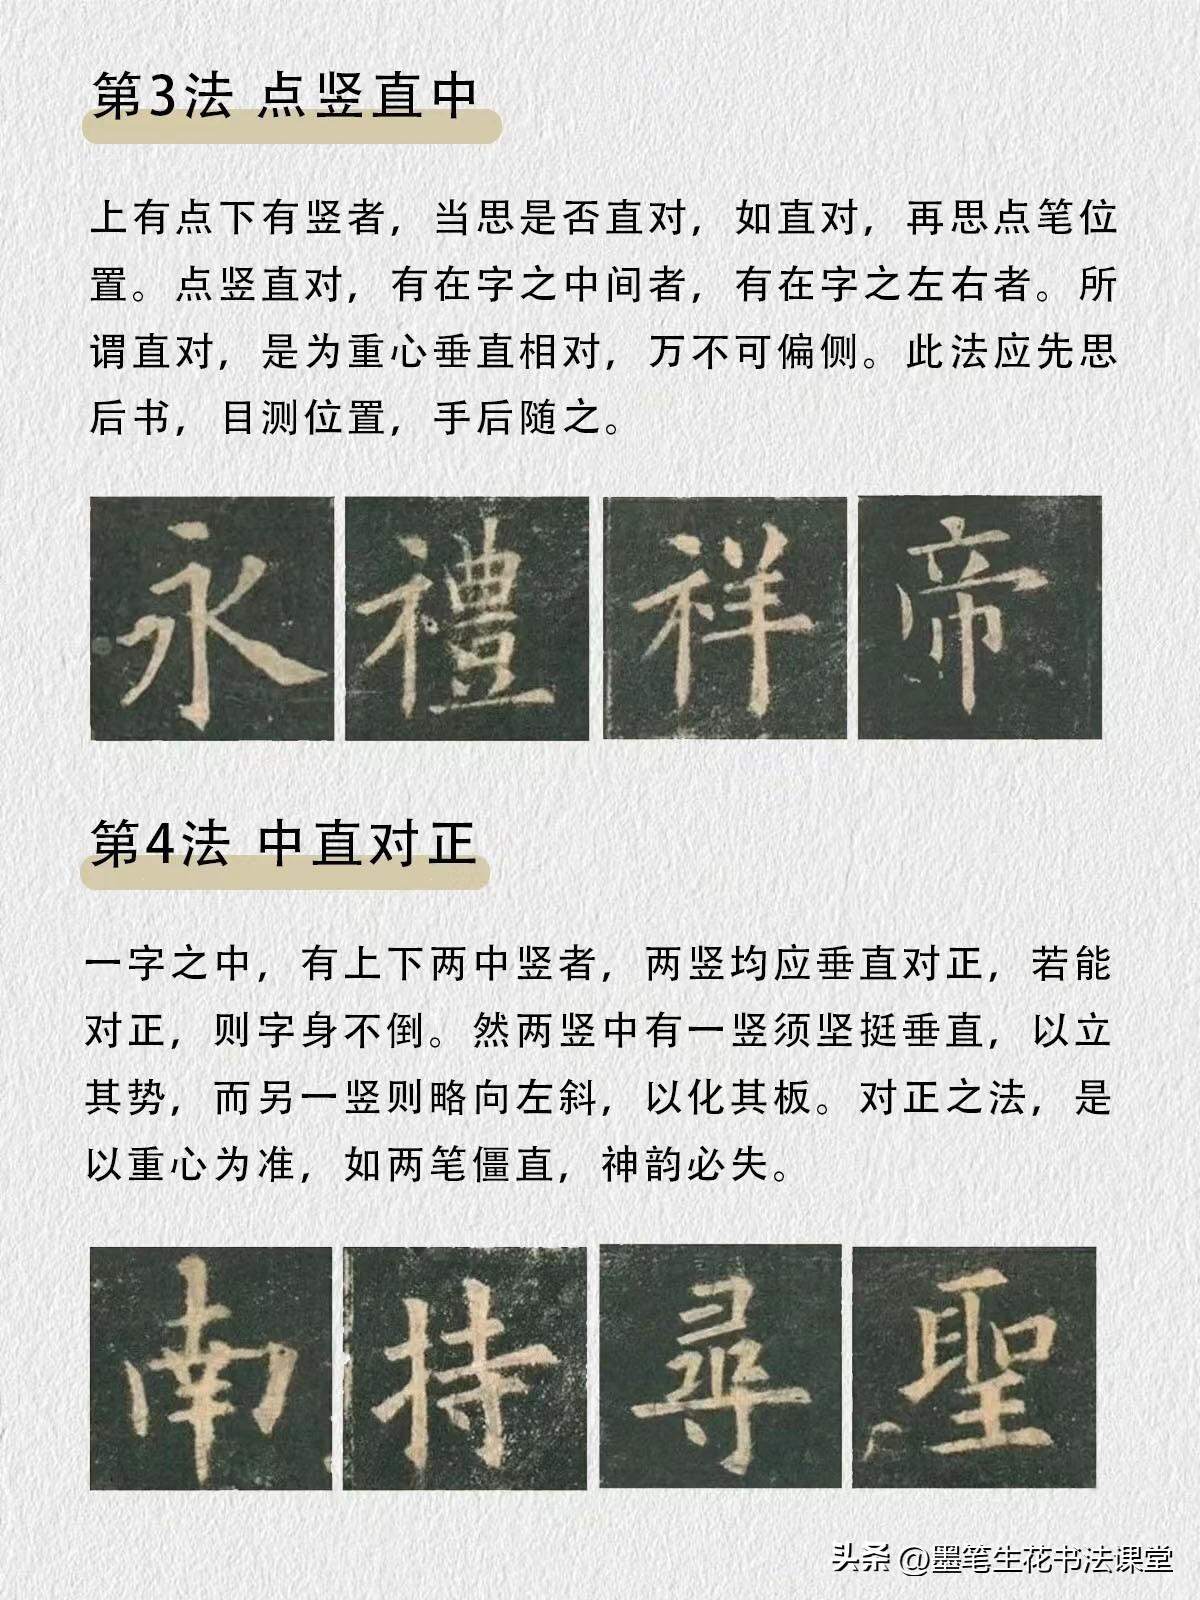 第3法 点竖直中
上有点下有竖者，当思是否直对，如直对，再思点笔位
置。点竖直对，有在字之中间者，有在字之左右者。所
谓直对，是为重心垂直相对，万不可偏侧。此法应先思
后书，目测位置，手后随之。
永 禮 祥 帝
第4法 中直对正
一字之中，有上下两中竖者，两竖均应垂直对正，若能
对正，则字身不倒。然两竖中有一竖须坚挺垂直，以立
其势，而另一竖则略向左斜，以化其板。对正之法，是
以重心为准，如两笔僵直，神韵必失。
南 持 尋 聖
头条 @墨笔生花书法课堂